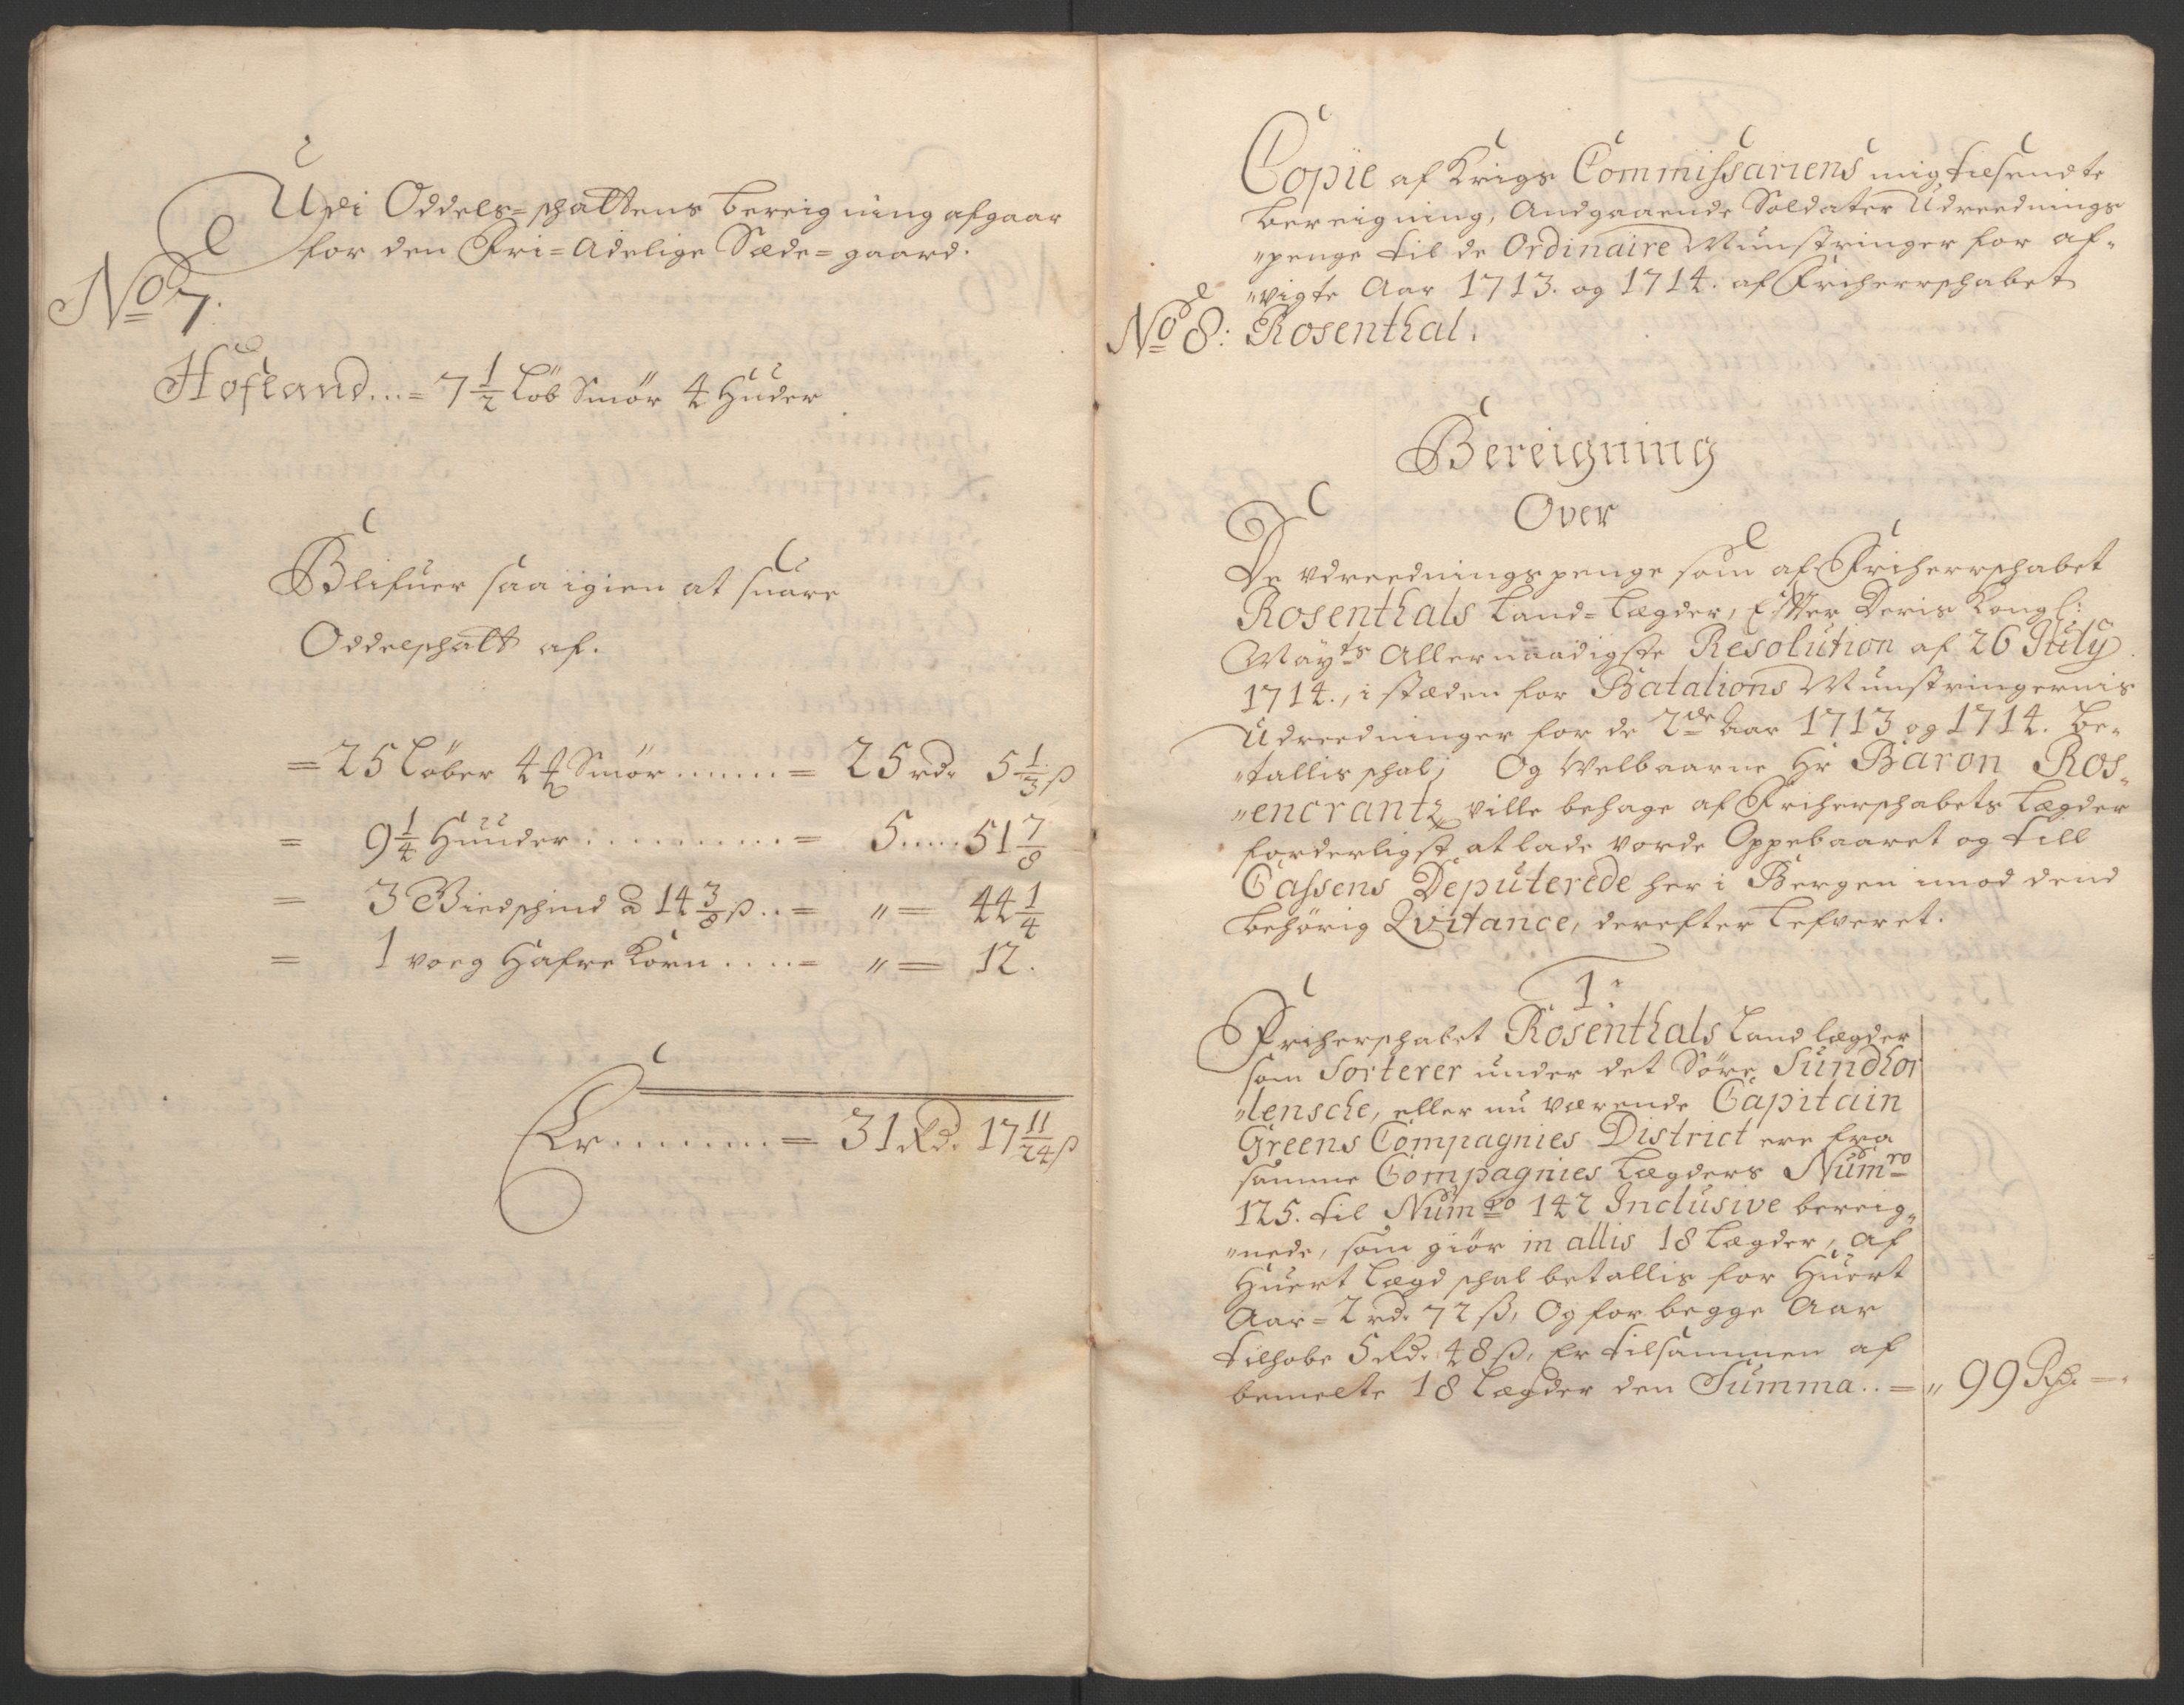 Udi Oddels-schattens bereigning afgaar
for den Fri-Adelige Sæde-gaard.
No 7.
Hofland...= 7 1/2 Löb Smör 4 Huder
Blifuer saa igien at suare
Oddelschatt af.
= 25 Löber 4 ℔ Smör ....... = 25 rd. 5 1/3 ß
= 9 1/4 Huuder ............ = 5 ..... 51 7/8
= 3 Giedschind a 14 3/8 ß .. = " = 44 1/4
= 1 voeg Hafre Korn ..... = " = 12.
Er ....... = 31 Rd. 17 11/24 ß
Copie af Krigs Commissariens mig tilsendte
bereigning, Andgaaende Soldater Udreednings
"penge til de Ordinaire Munstringer for af-
"vigte Aar 1713. og 1714. af Friherrschabet
No 8: Rosenthal.
Bereigning
Over
De vdreedningspenge som af Friherrschabet
Rosenthals Land-Lægder, Efter Deris Kongl:
Mayts Allernaadigste Resolution af 26 July
1714., i stæden for Batalions Munstringernis
Udreedninger for de 2de Aar 1713 og 1714. be-
"tallis schal; Og Welbaarne Hr Baron Ros-
"encrantz ville behage af Friherschabets Lægder
forderligst at lade vorde Oppebaaret og till
Cassens Deputerede her i Bergen imod dend
behörig Qvitance, derefter Lefveret.
1:
Friherschabet Rosenthals Land lægder
som Sorterer under det Söre Sundhor
"lensche, eller nu værende Capitain
Greens Compagnies District ere fra
samme Compagnies Lægders Numro
125. til Numro 142 Inclusive bereig-
"nede, som giör in allis 18 Lægder, af
Huert Lægd schal betallis for Huert
Aar = 2 rd. 72 ß, Og for begge Aar
tilhobe 5 Rd. 48 ß, Er tilsammen af
bemelte 18 Lægder den Summa .. = " 99 Rd. =